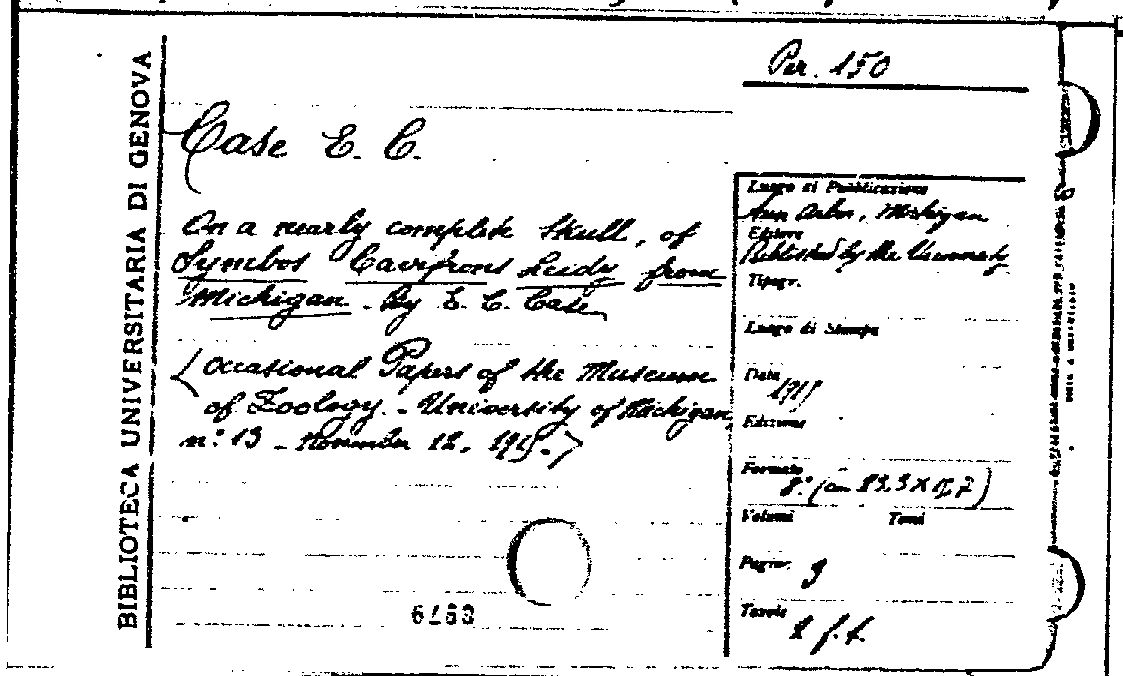 BIBLIOTECA UNIVERSITARIA DI GENOVA
Per. 150
Case E. C.
On a nearly complete Skull, of
Symbos Cavifrons Leidy from
Michigan. By E. C. Case
(Occasional Papers of the Museum
of Zoology. - University of Michigan,
n.° 13 - November 12, 1915.)
6763
Luogo di Pubblicazione
Ann Arbor, Michigan
Editore
Published by the University
Tipogr.
Luogo di Stampa
Data
1915
Edizione
Formato
8° (cm 23,3 X 15,7)
Volumi Tomi
Pagine 9
Tavole
2 f.t.